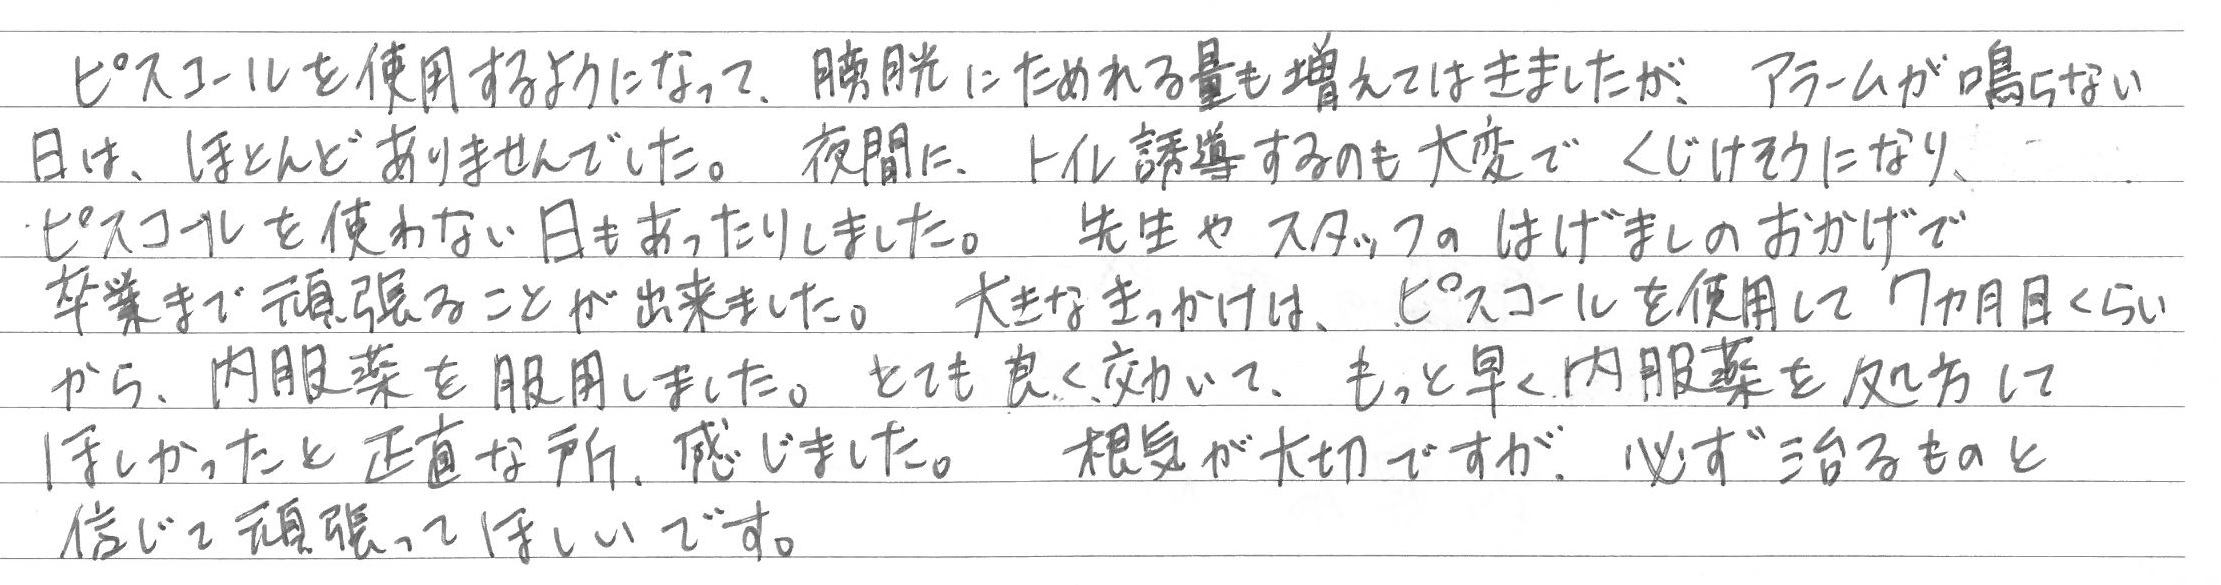 ピスコールを使用するようになって、膀胱にためれる量も増えてはきましたが、アラームが鳴らない
日は、ほとんどありませんでした。夜間に、トイレ誘導するのも大変でくじけそうになり、
ピスコールを使わない日もあったりしました。先生やスタッフのはげましのおかげで
卒業まで頑張ることが出来ました。大きなきっかけは、ピスコールを使用して7カ月目くらい
から、内服薬を服用しました。とても良く効いて、もっと早く内服薬を処方して
ほしかったと正直な所、感じました。根気が大切ですが、必ず治るものと
信じて頑張ってほしいです。